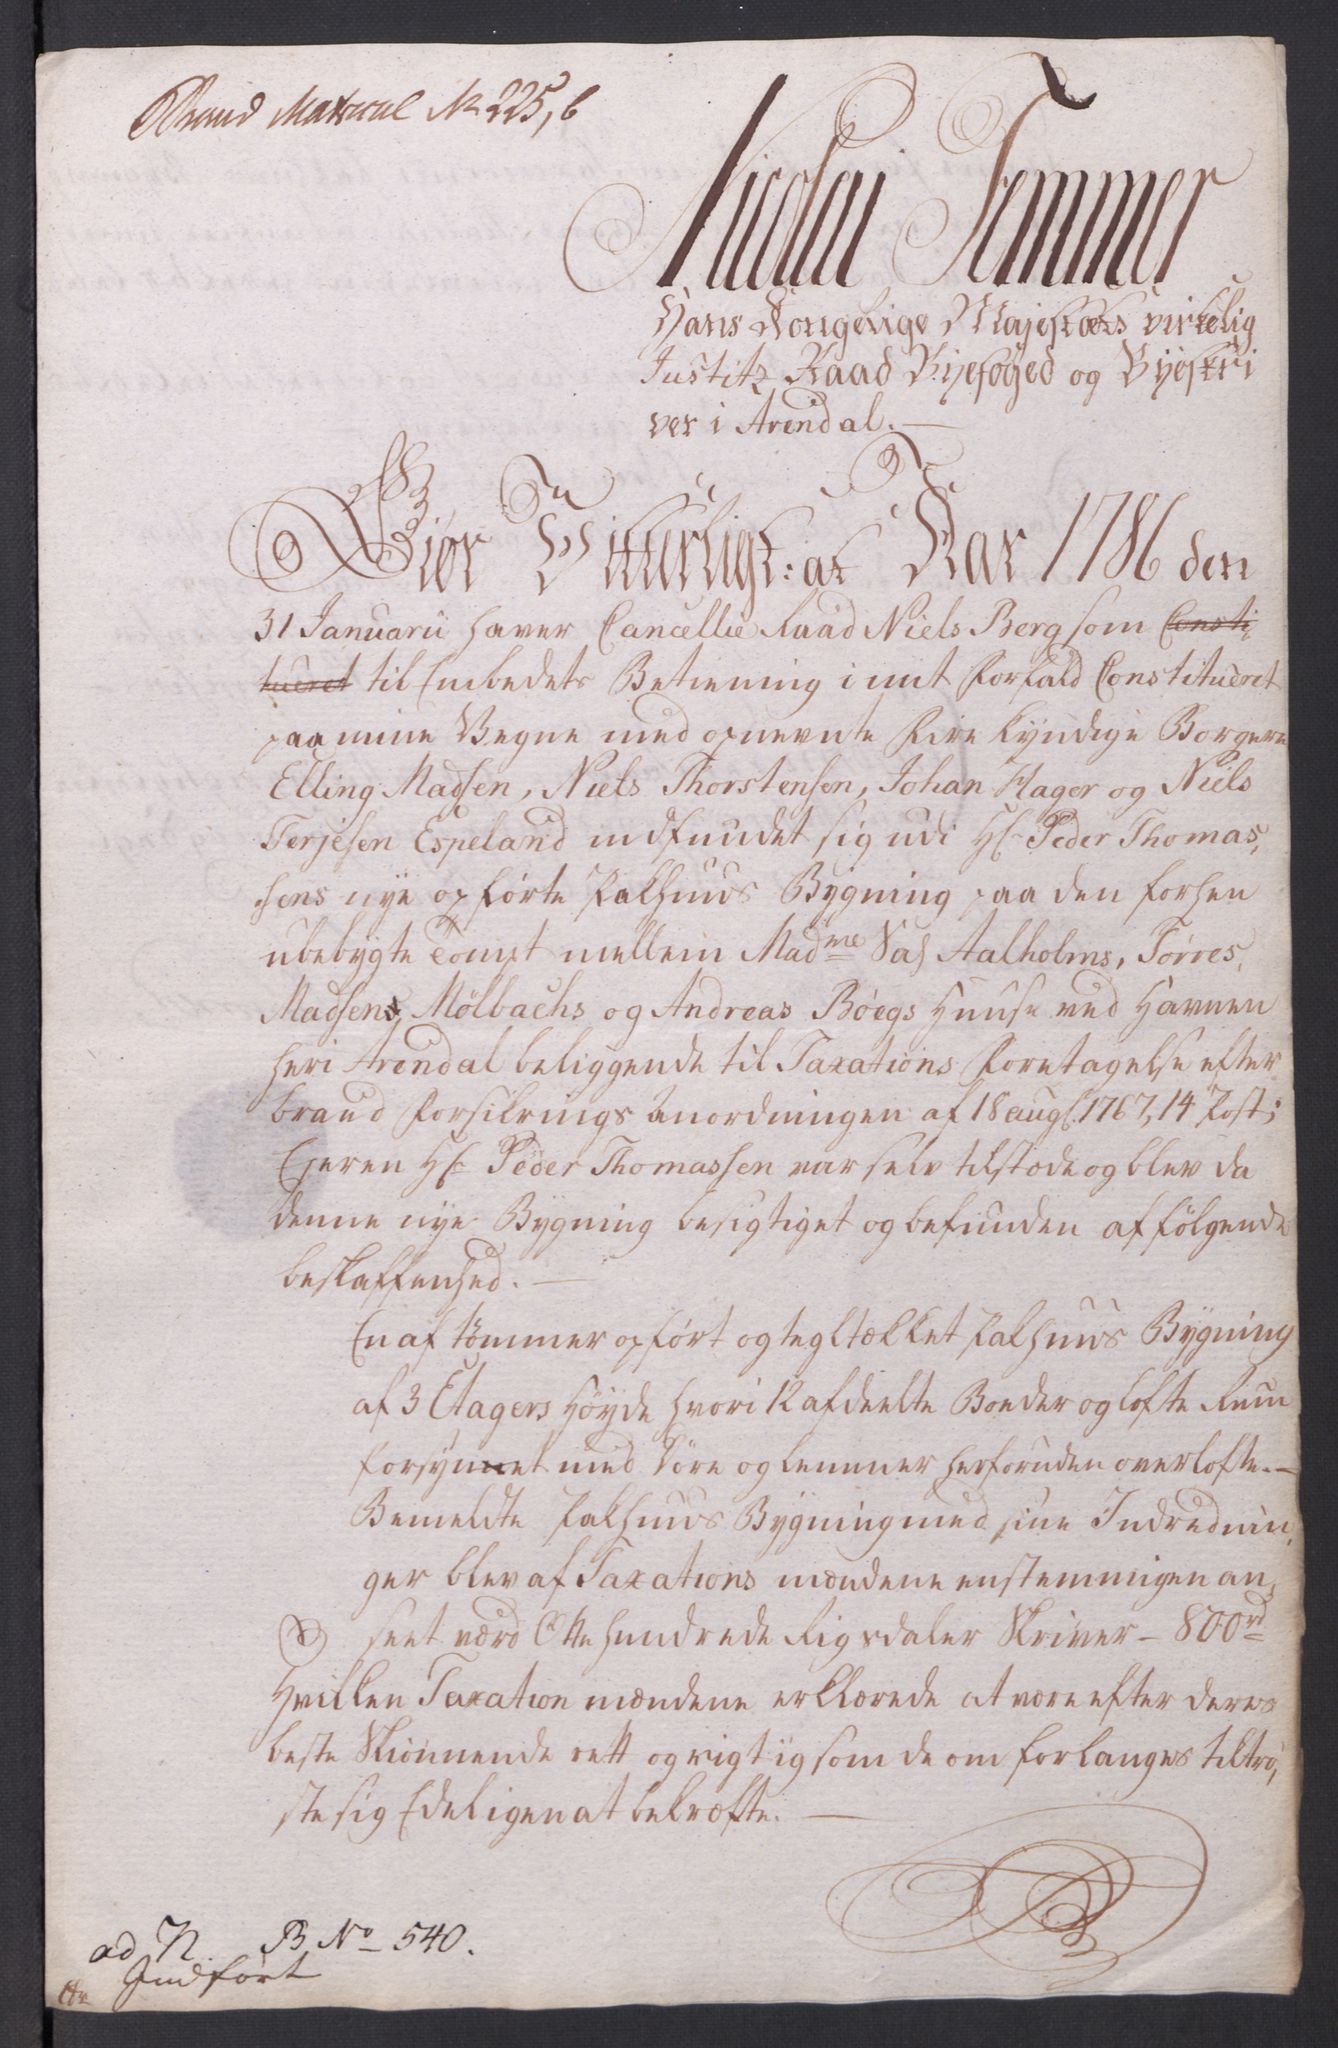 Brand Matricul No 225, b
Nicolai Femmer
Hans Kongelige Majestæts virkelig
Justitz Raad Byefoged og Byeskri
ver i Arendal. —
Giør Vitterligt: at Aar 1786 den
31 Januarii haver Cancellie Raad Niels Berg som Consti
tueret til Embedets Betiening i mit Forfald Constitueret
paa mine Vegne med opnevnte Fire kyndige Borgere
Elling Madsen, Niels Thorstensen, Johan Flager og Niels
Terjesen Espeland indfundet sig udi Hr Peder Thomas,
sens nye opførte Pakhuus Bygning paa den forhen
ubebygte Tompt mellem Madme Sal Aalholms, Törres,
Madsens, Mölbachs og Andreas Böegs Huuse ved Havnen
her i Arendal beliggende til Taxations Foretagelse efter
brand Forsikrings Anordningen af 18 augs. 1767, 14 Post;
Ejeren Hr Peder Thomassen var selv tilstæde og blev da
denne nye Bygning besigtiget og befunden af følgende
beskaffenhed. —
En af tömmer opført og tegltækket Pakhuus Bygning
af 3 Etagers Höyde hvori 12 afdeelte Boeder og lofte Rum
forsynnet med Döre og lemmer herforuden overlofte. —
Bemeldte Pakhuus Bygning med sine Indrednin,
ger blev af Taxations mændene enstemmigen an,
seet værd Otte hundrede Rigsdaler Skriver – 800 rd
Hvilken Taxation mændene erklærede at være efter deres
beste Skiønnende rett og rigtig som de om forlanges tiltrø,
ste sig Edeligen at bekræfte. —
ad 7/2. B No 540.
Indført